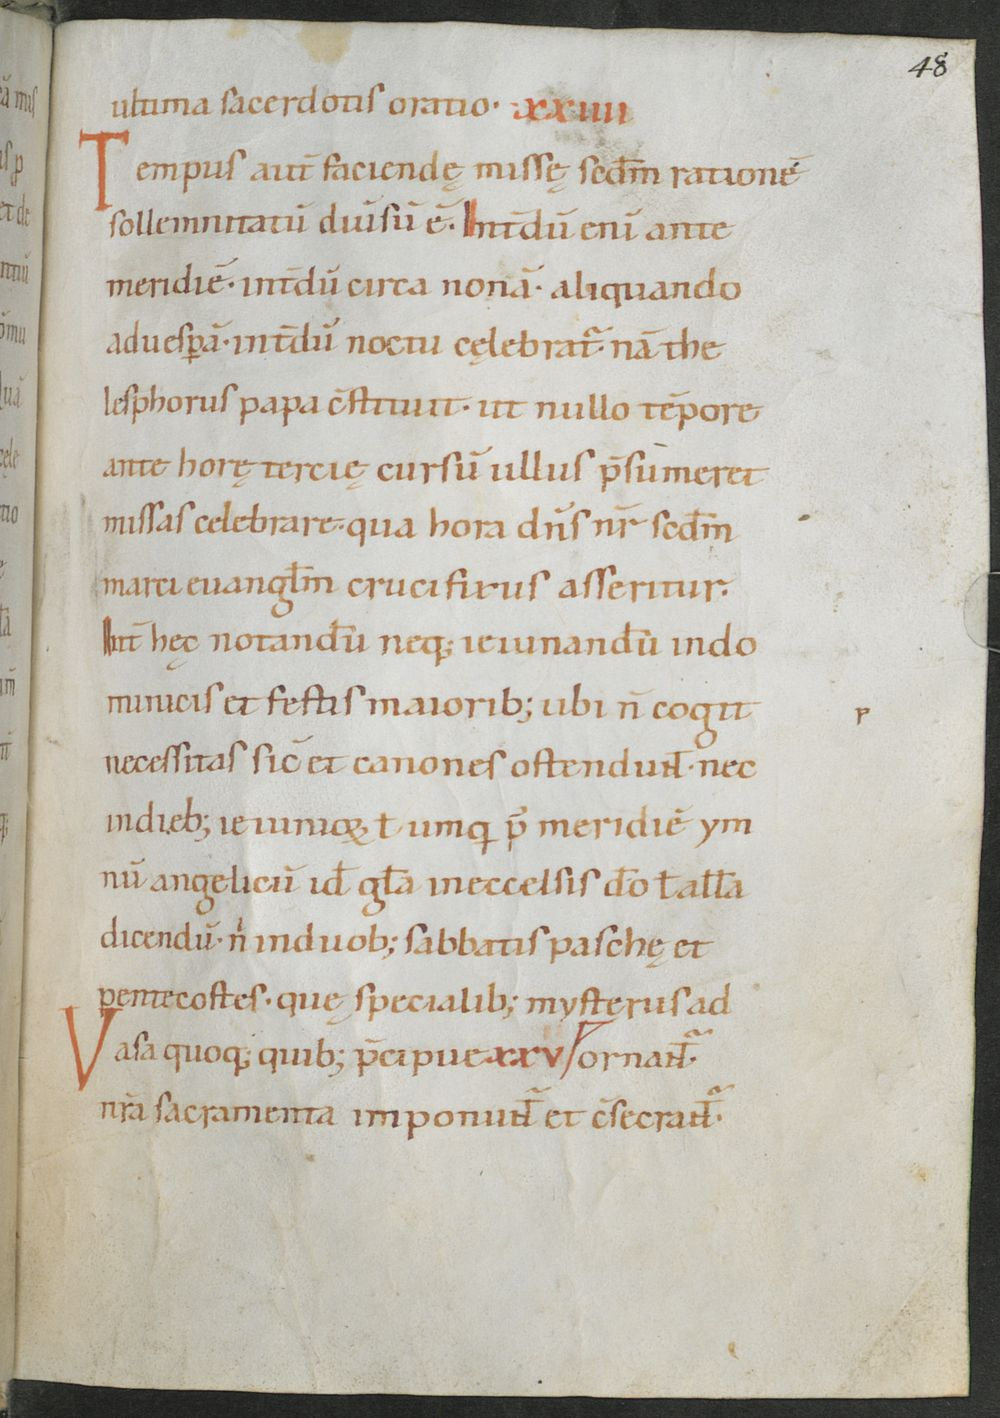 48
ultima sacerdotis oratio· xxiiii
Tempus aut̄ faciendę missę scd̄m rationē
sollemnitatū diuisū ē. Int̄dū eni ante
meridiē· int̄dū circa nonā· aliquando
aduesꝑā· int̄dū noctu cęlebrat̄· nā the
lesphorus papa c̄stituit· ut nullo tēpore
ante horę tercię cursū ullus p̄sumeret
missas celebrare· qua hora dn̄s nr̄ scd̄m
marci euangl̄m crucifixus asseritur.
Int̄ hęc notandū neq; ieiunandū indo
minicis et festis maiorib; ubi n̄ cogit
necessitas sic̄ et canones ostendunt̄· nec
indieb; ieiuniorꝝ ł umq̄ p̄ meridiē ym
nū angelicū id̄ gl̄a ineccelsis d̄o ł all̄a
dicendū· n̄ induob; sabbatis paschę et
pentecostes· quę specialib; mysteriis ad
Vasa quoq; quib; p̄cipue xxv ornant̄·
nr̄a sacramenta imponunt̄ et c̄secrant̄·
r